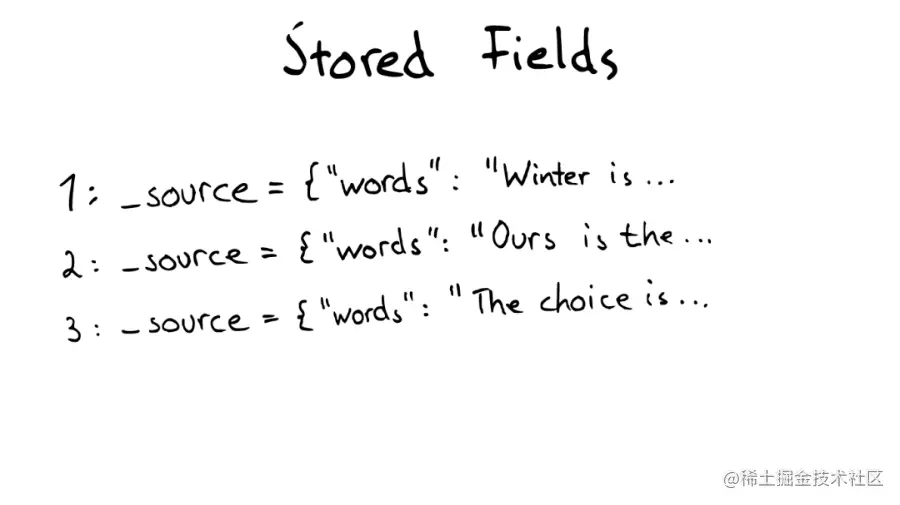 Stored Fields
1: _source = {"words": "Winter is ...
2: _source = {"words": "Ours is the ...
3: _source = {"words": "The choice is ...
@稀土掘金技术社区